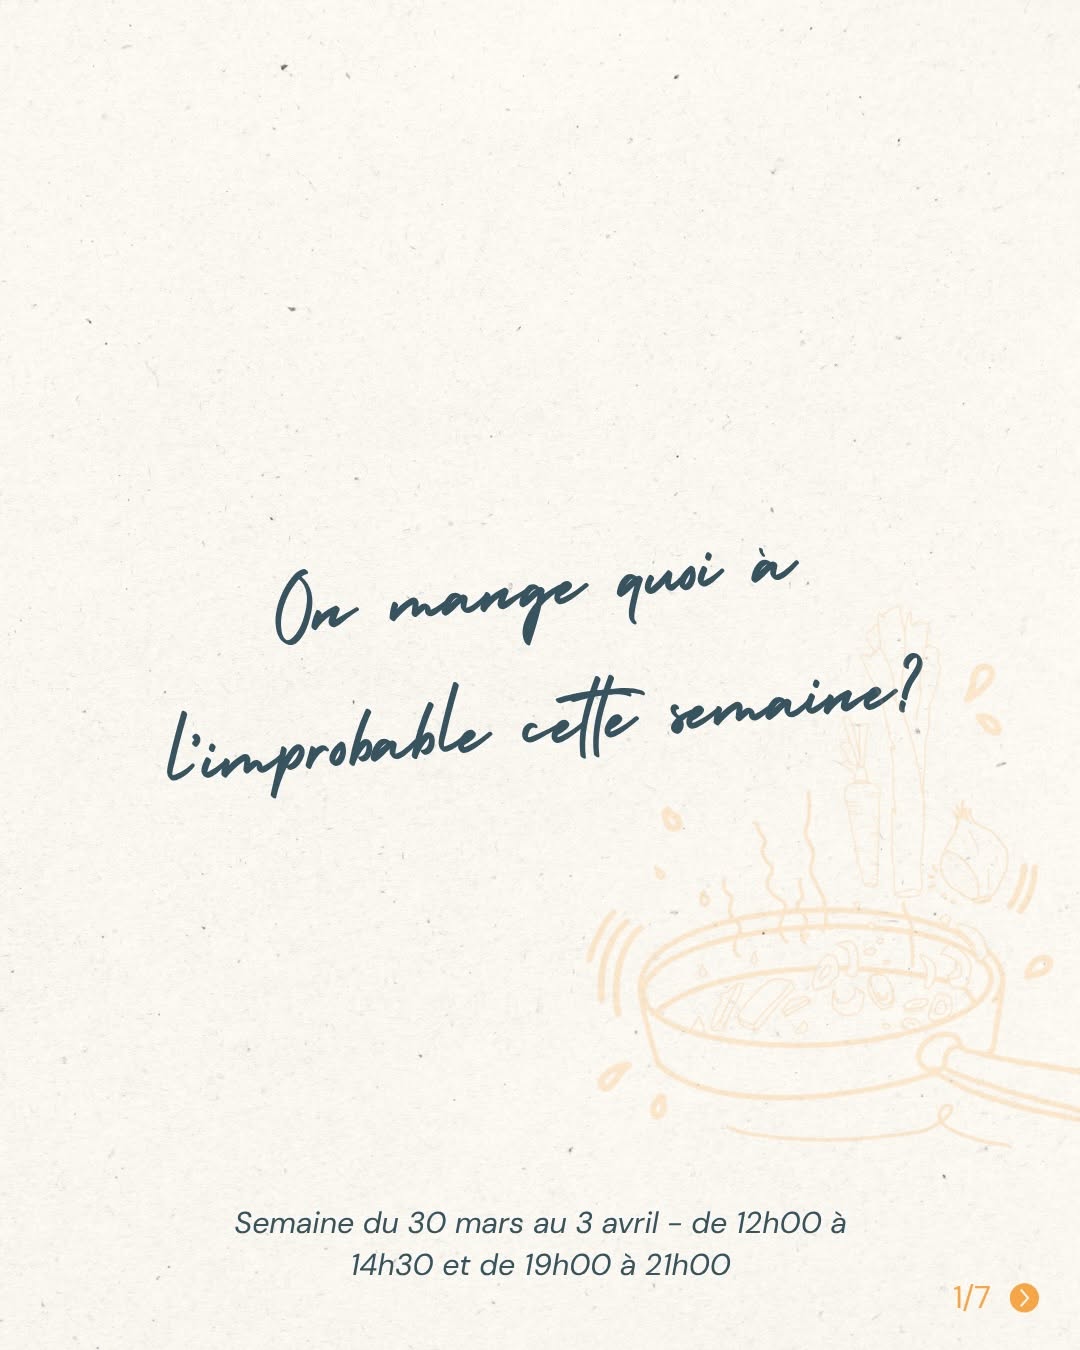 On mange quoi à
l'improbable cette semaine?
Semaine du 30 mars au 3 avril - de 12h00 à
14h30 et de 19h00 à 21h00
1/7